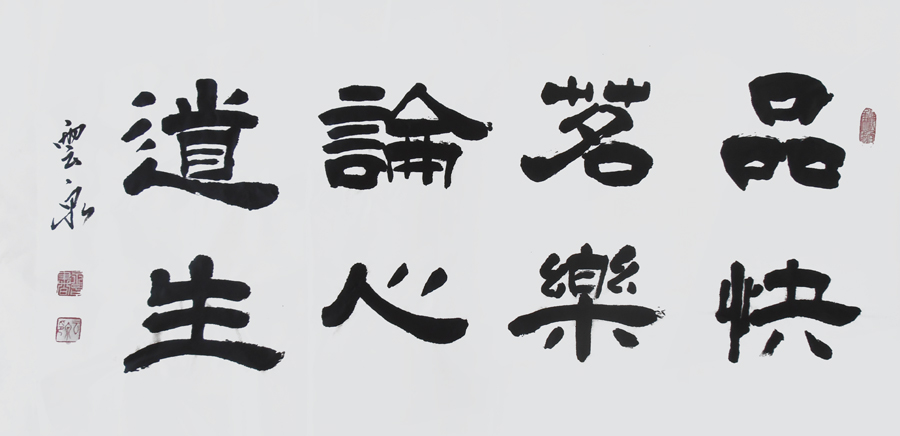 品快
茗樂
論心
道生
雲泉